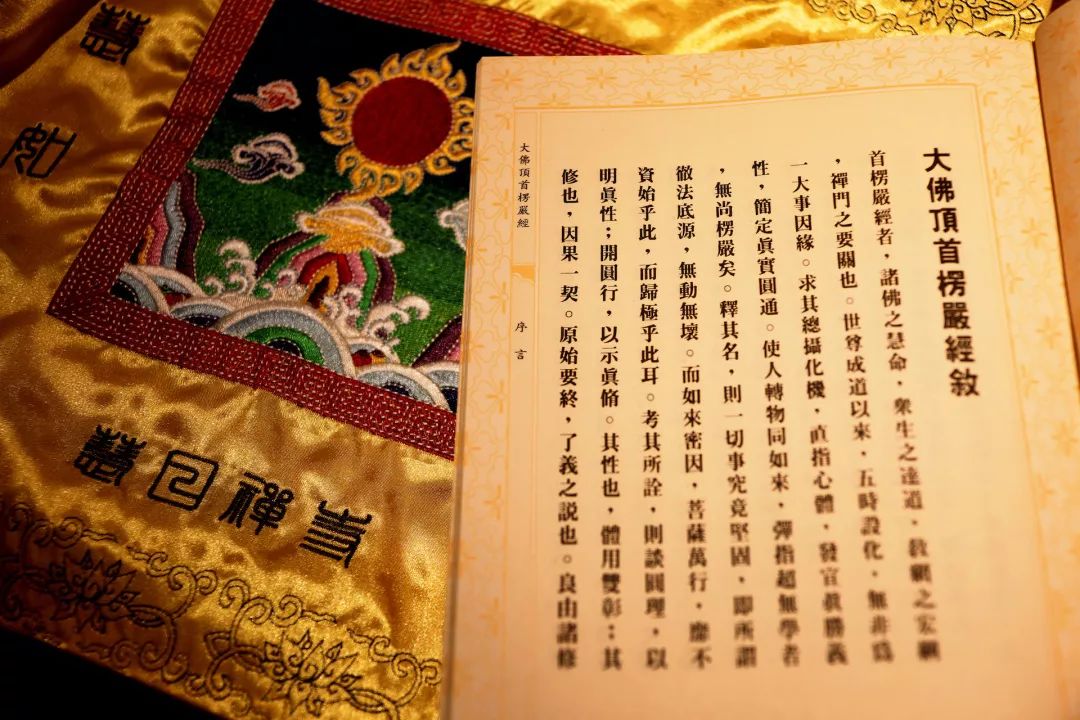 大佛頂首楞嚴經敘
首楞嚴經者，諸佛之慧命，衆生之達道，教網之宏綱
，禪門之要關也。世尊成道以來，五時設化，無非爲
一大事因緣。求其總攝化機，直指心體，發宣眞勝義
性，簡定眞實圓通。使人轉物同如來，彈指超無學者
，無尚楞嚴矣。釋其名，則一切事究竟堅固，即所謂
徹法底源，無動無壞。而如來密因，菩薩萬行，靡不
資始乎此，而歸極乎此耳。考其所詮，則談圓理，以
明眞性；開圓行，以示眞脩。其性也，體用雙彰；其
修也，因果一契。原始要終，了義之説也。良由諸修
大佛頂首楞嚴經
序言
慧
如
禪
慧